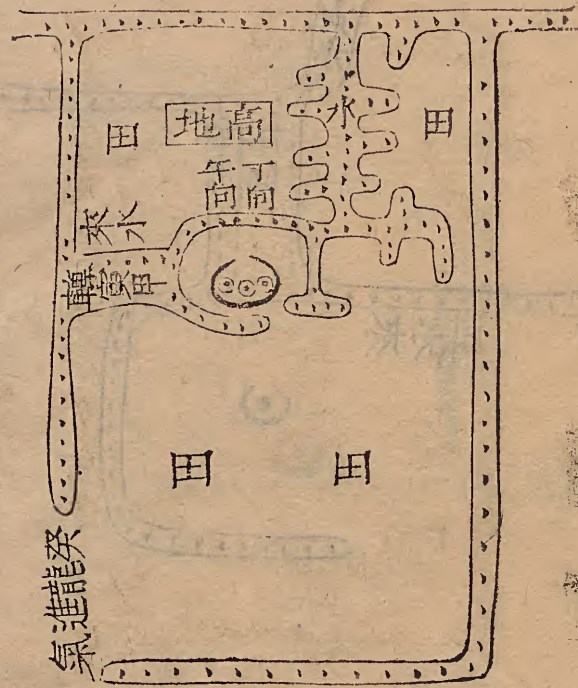 田
高地
田
水
丁向
午向
水來
甲寅轉
田
田
癸龍進氣